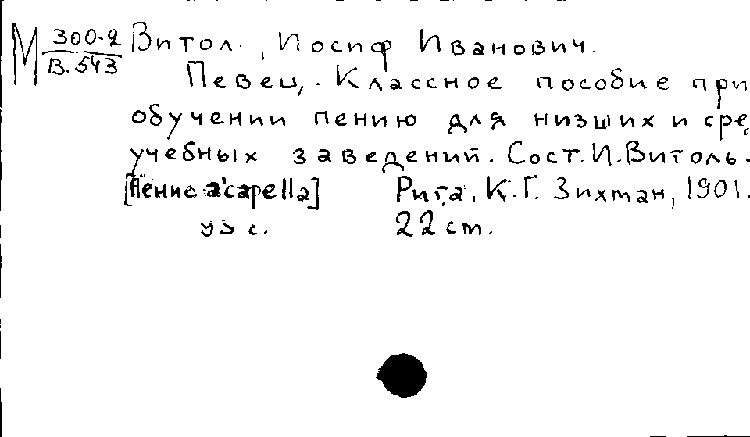 М 300-2 Витол., Иосиф Иванович.
В.543
Певец. Классное пособие при
обучении пению для низших и сред
учебных заведений. Сост. И. Витоль.
[Пение a'capella] Рига, К.Г. Зихман, 1901.
с. 22 ст.